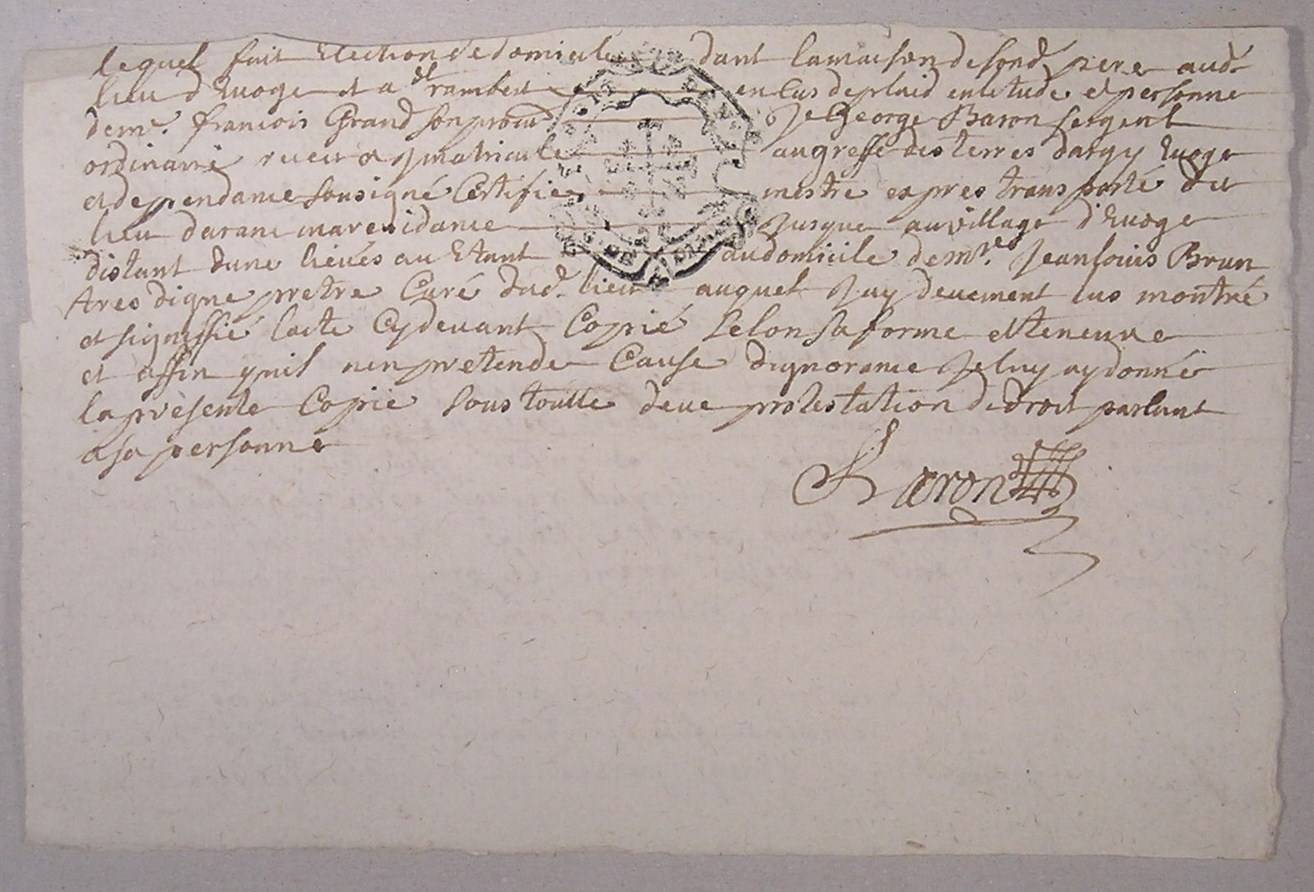 lequel fait Election de domicile dant la maison de sond. pere aud.
lieu d'Evoge et a St rambert en Cas de plaid en letude et personne
de me. francois Grand son procur Je George Baron sergent
ordinaire receu et jmatriculé au greffe des terres dargy Evoge
et dependance sousigné Certifie mestre expres transporté du
lieu daranc ma residance Jusque au village d'Evoge
distant dune lieües au Etant au domicile de mre. Jean louis Brun
tres digne pretre Curé dud. lieu auquel Jay deuement lus montré
et signiffié lacte Cy devant Copié selon sa forme et teneure
et affin quil nen pretende Cause dignorance Je luy ay donné
la présente Copie sous toutte deue protestation de droit parlant
a sa personne
Baron